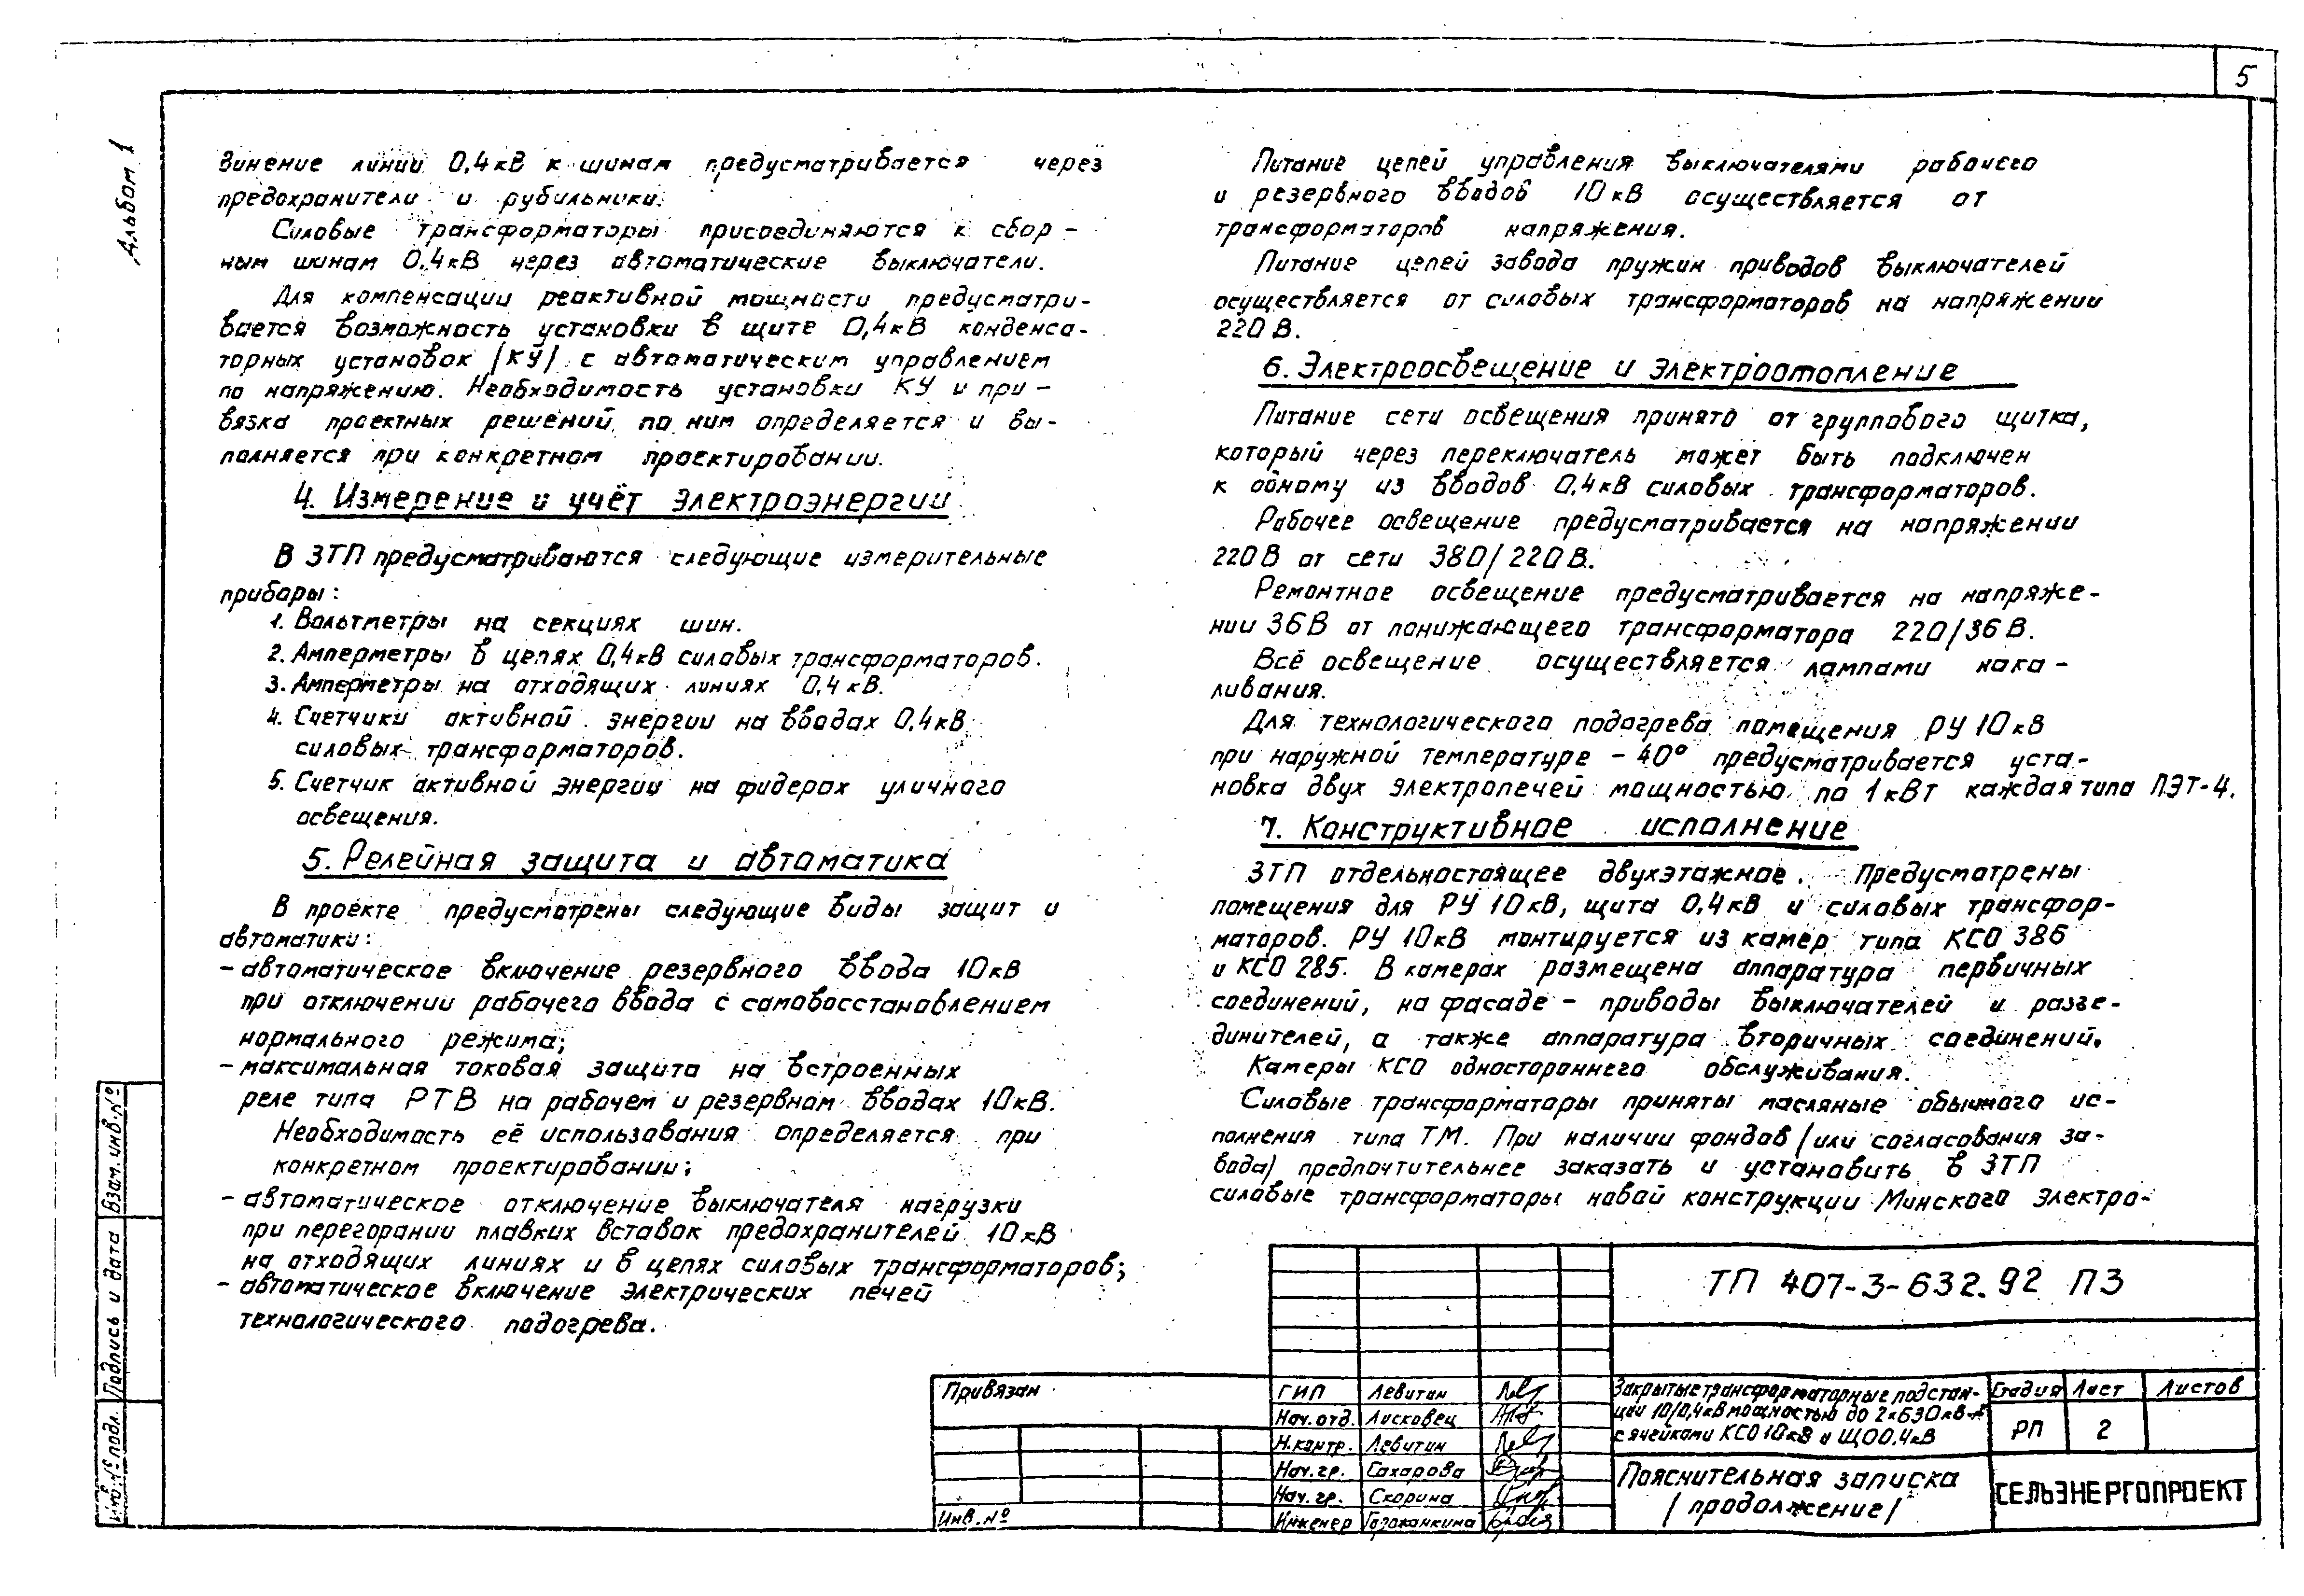 5
Альбом 1
динение линий 0,4 кВ к шинам предусматривается через
предохранители и рубильники.
Силовые трансформаторы присоединяются к сбор-
ным шинам 0,4 кВ через автоматические выключатели.
Для компенсации реактивной мощности предусматри-
вается возможность установки в щите 0,4 кВ конденса-
торных установок /КУ/ с автоматическим управлением
по напряжению. Необходимость установки КУ и при-
вязка проектных решений по ним определяется и вы-
полняется при конкретном проектировании.
4. Измерение и учёт электроэнергии
В ЗТП предусматриваются следующие измерительные
приборы:
1. Вольтметры на секциях шин.
2. Амперметры в цепях 0,4 кВ силовых трансформаторов.
3. Амперметры на отходящих линиях 0,4 кВ.
4. Счетчики активной энергии на вводах 0,4 кВ
силовых трансформаторов.
5. Счетчик активной энергии на фидерах уличного
освещения.
5. Релейная защита и автоматика
В проекте предусмотрены следующие виды защит и
автоматики:
- автоматическое включение резервного ввода 10 кВ
при отключении рабочего ввода с самовосстановлением
нормального режима;
- максимальная токовая защита на встроенных
реле типа РТВ на рабочем и резервном вводах 10 кВ.
Необходимость её использования определяется при
конкретном проектировании;
- автоматическое отключение выключателя нагрузки
при перегорании плавких вставок предохранителей 10 кВ
на отходящих линиях и в цепях силовых трансформаторов;
- автоматическое включение электрических печей
технологического подогрева.
Питание цепей управления выключателями рабочего
и резервного вводов 10 кВ осуществляется от
трансформаторов напряжения.
Питание цепей завода пружин приводов выключателей
осуществляется от силовых трансформаторов на напряжении
220 В.
6. Электроосвещение и электроотопление
Питание сети освещения принято от группового щитка,
который через переключатель может быть подключен
к одному из вводов 0,4 кВ силовых трансформаторов.
Рабочее освещение предусматривается на напряжении
220 В от сети 380/220 В.
Ремонтное освещение предусматривается на напряже-
нии 36 В от понижающего трансформатора 220/36 В.
Всё освещение осуществляется лампами нака-
ливания.
Для технологического подогрева помещения РУ 10 кВ
при наружной температуре - 40° предусматривается уста-
новка двух электропечей мощностью по 1 кВт каждая типа ПЭТ-4.
7. Конструктивное исполнение
ЗТП отдельностоящее двухэтажное. Предусмотрены
помещения для РУ 10 кВ, щита 0,4 кВ и силовых трансфор-
маторов. РУ 10 кВ монтируется из камер типа КСО 386
и КСО 285. В камерах размещена аппаратура первичных
соединений, на фасаде - приводы выключателей и разъе-
динителей, а также аппаратура вторичных соединений.
Камеры КСО одностороннего обслуживания.
Силовые трансформаторы приняты масляные обычного ис-
полнения типа ТМ. При наличии фондов /или согласования за-
вода/ предпочтительнее заказать и установить в ЗТП
силовые трансформаторы новой конструкции Минского электро-
ТП 407-3-632.92 ПЗ
Привязан
Инв. №
ГИП Левитин
Нач. отд. Лисковец
Н. контр. Левитин
Нач. гр. Сахарова
Нач. гр. Скорина
Инженер
Закрытые трансформаторные подстан-
ции 10/0,4 кВ мощностью до 2×630 кВ·А
с ячейками КСО 10 кВ и ЩО 0,4 кВ
Стадия Лист Листов
РП 2
Пояснительная записка
/продолжение/
СЕЛЬЭНЕРГОПРОЕКТ
Взам. инв. №
Подпись и дата
Инв. № подл.